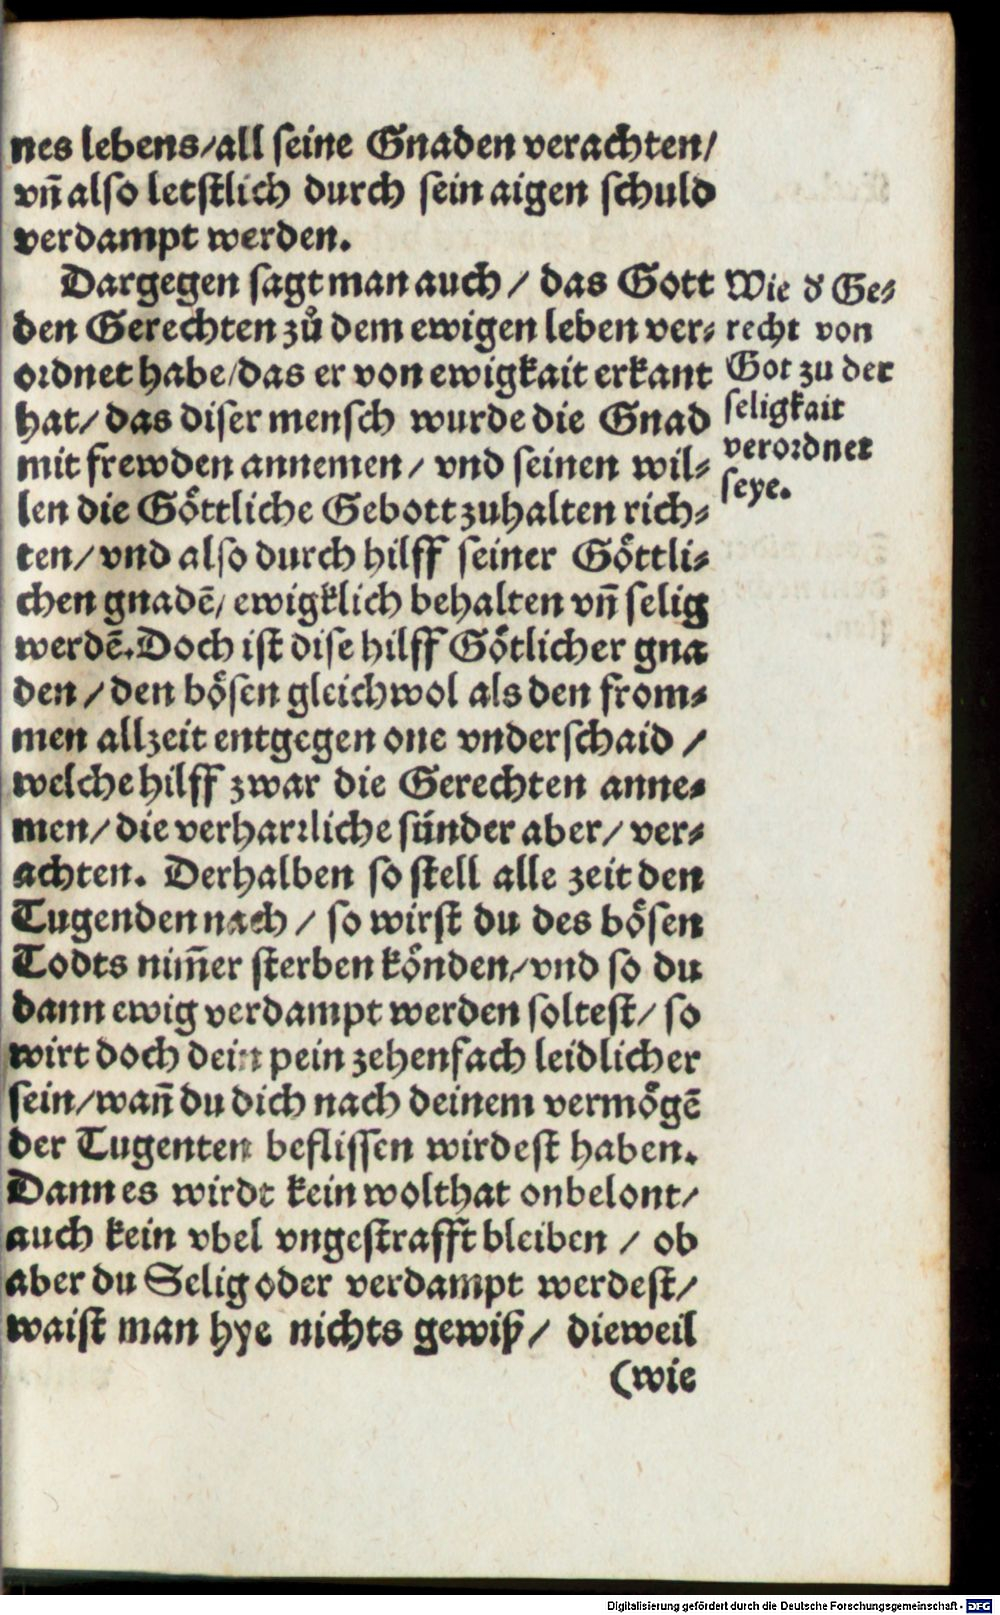 nes lebens/all seine Gnaden verachten/
vñ also letstlich durch sein aigen schuld
verdampt werden.
Dargegen sagt man auch / das Gott
den Gerechten zů dem ewigen leben ver⸗
ordnet habe/das er von ewigkait erkant
hat/ das diser mensch wurde die Gnad
mit frewden annemen/ vnd seinen wil⸗
len die Göttliche Gebott zuhalten rich⸗
ten/ vnd also durch hilff seiner Göttli⸗
chen gnadē/ ewigklich behalten vñ selig
werdē. Doch ist dise hilff Götlicher gna
den / den bösen gleichwol als den from⸗
men allzeit entgegen one vnderschaid /
welche hilff zwar die Gerechten anne⸗
men/ die verharrliche sünder aber/ ver⸗
achten. Derhalben so stell alle zeit den
Tugenden nach / so wirst du des bösen
Todts nim̄er sterben könden/vnd so du
dann ewig verdampt werden soltest/ so
wirt doch dein pein zehenfach leidlicher
sein/wañ du dich nach deinem vermögē
der Tugenten beflissen wirdest haben.
Dann es wirdt kein wolthat onbelont/
auch kein vbel vngestrafft bleiben / ob
aber du Selig oder verdampt werdest/
waist man hye nichts gewiß/ dieweil
(wie
Wie d̕ Ge⸗
recht von
Got zu der
seligkait
verordnet
seye.
Digitalisierung gefördert durch die Deutsche Forschungsgemeinschaft - DFG